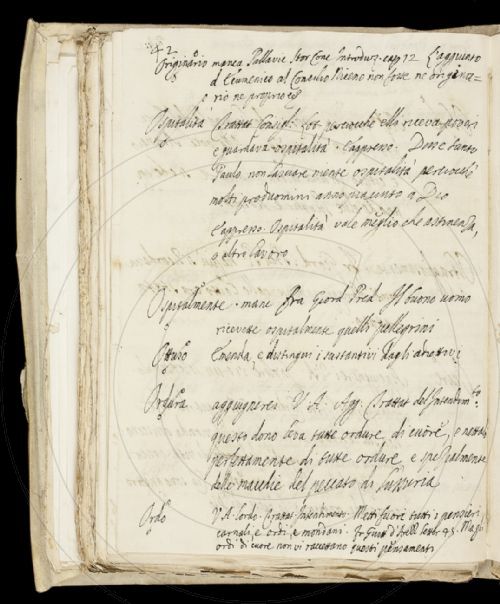 42
Originàrio manca Pallavic Stor Conc Introduz. cap 12 L'aggiunto
d'Ecumenico al Concilio Niceno non fosse ne origina=
rio ne proprio &c
Ospitalità Trattat Consigl: Let perciocchè elli riceva poveri
e guardava ospitalità. E appresso. Dice Santo
Paulo, non lasciare niente ospitalità perciocchè
molti produomini anno piaciuto a Dio
E appresso. Ospitalità vale meglio che astinenza,
o altro lavoro
Ospitalmente. manc Fra Giord Pred Il buono uomo
ricevete ospitalmente quelli pellegrini
Ottuso Emenda, e distingui i sustantivi dagli adiettivi
Ordura aggiugnerei V. A. Agg. Trattat dell'Intendim.to
questo dono leva tutte ordure di cuore, e netta
perfettamente di tutte ordure e spezialmente
delle macchie del peccato di lussuria
Ordo V. A. Lordo. Trattat Intendimento. Metti fuore tutti i pensieri
carnali e ordi e mondani. Fr Guitt d'Arell Lett. 45.
ordi di cuore non vi racettano questi pensamenti